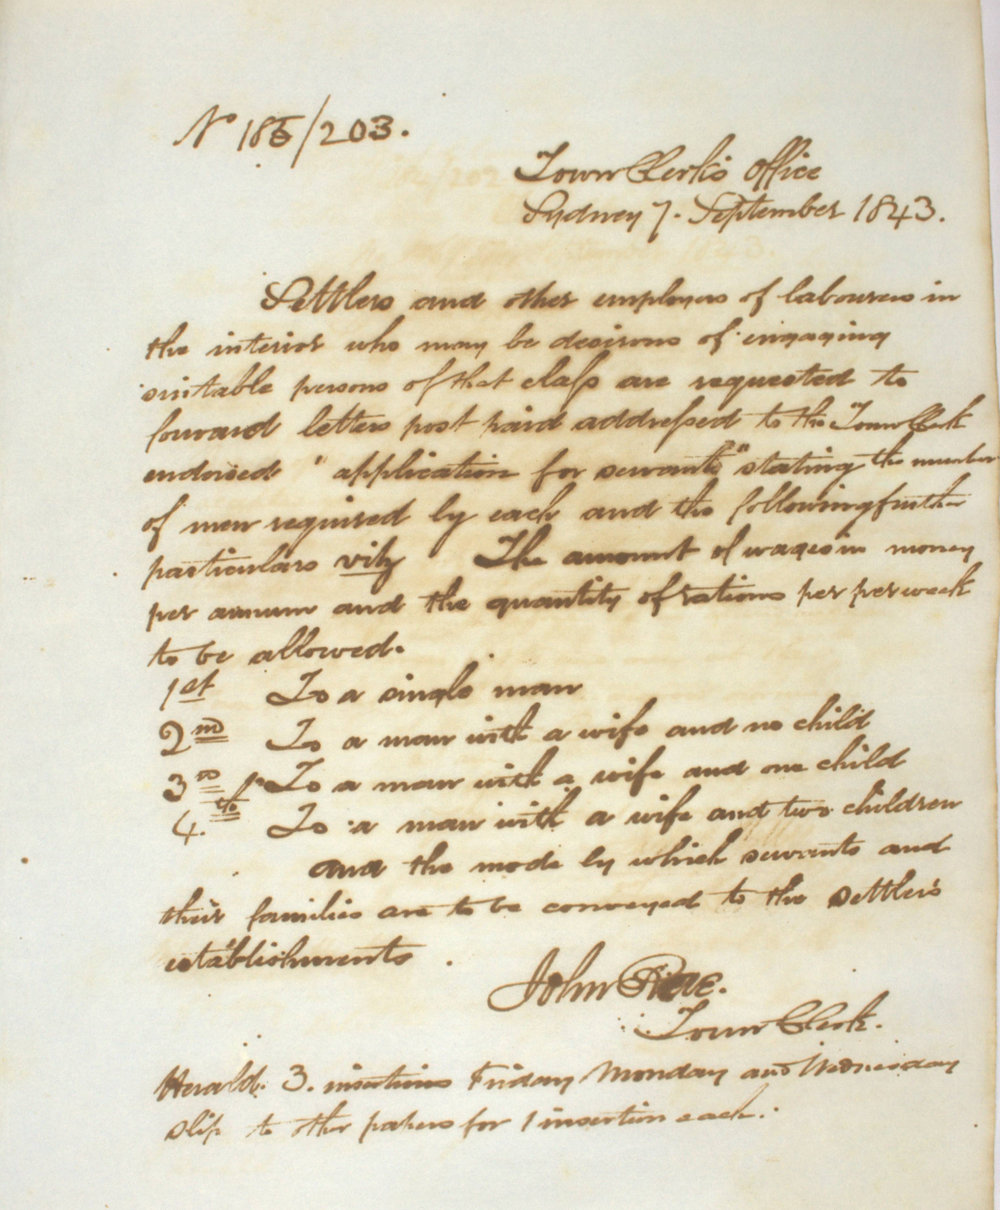 No 185/203.
Town Clerk's Office
Sydney 7. September 1843.
Settlers and other employers of labourers in
the interior who may be desirous of engaging
suitable persons of that class are requested to
forward letters post paid addressed to the Town Clerk
endorsed "application for servants" stating the number
of men required by each and the following further
particulars viz The amount of wages in money
per annum and the quantity of rations per per week
to be allowed.
1st To a single man
2nd To a man with a wife and no child
3rd To a man with a wife and one child
4.th To a man with a wife and two children
and the mode by which servants and
their families are to be conveyed to the settlers
establishments.
John Rae.
Town Clerk.
Herald. 3. insertions Friday Monday and Wednesday
slip to other papers for 1 insertion each.